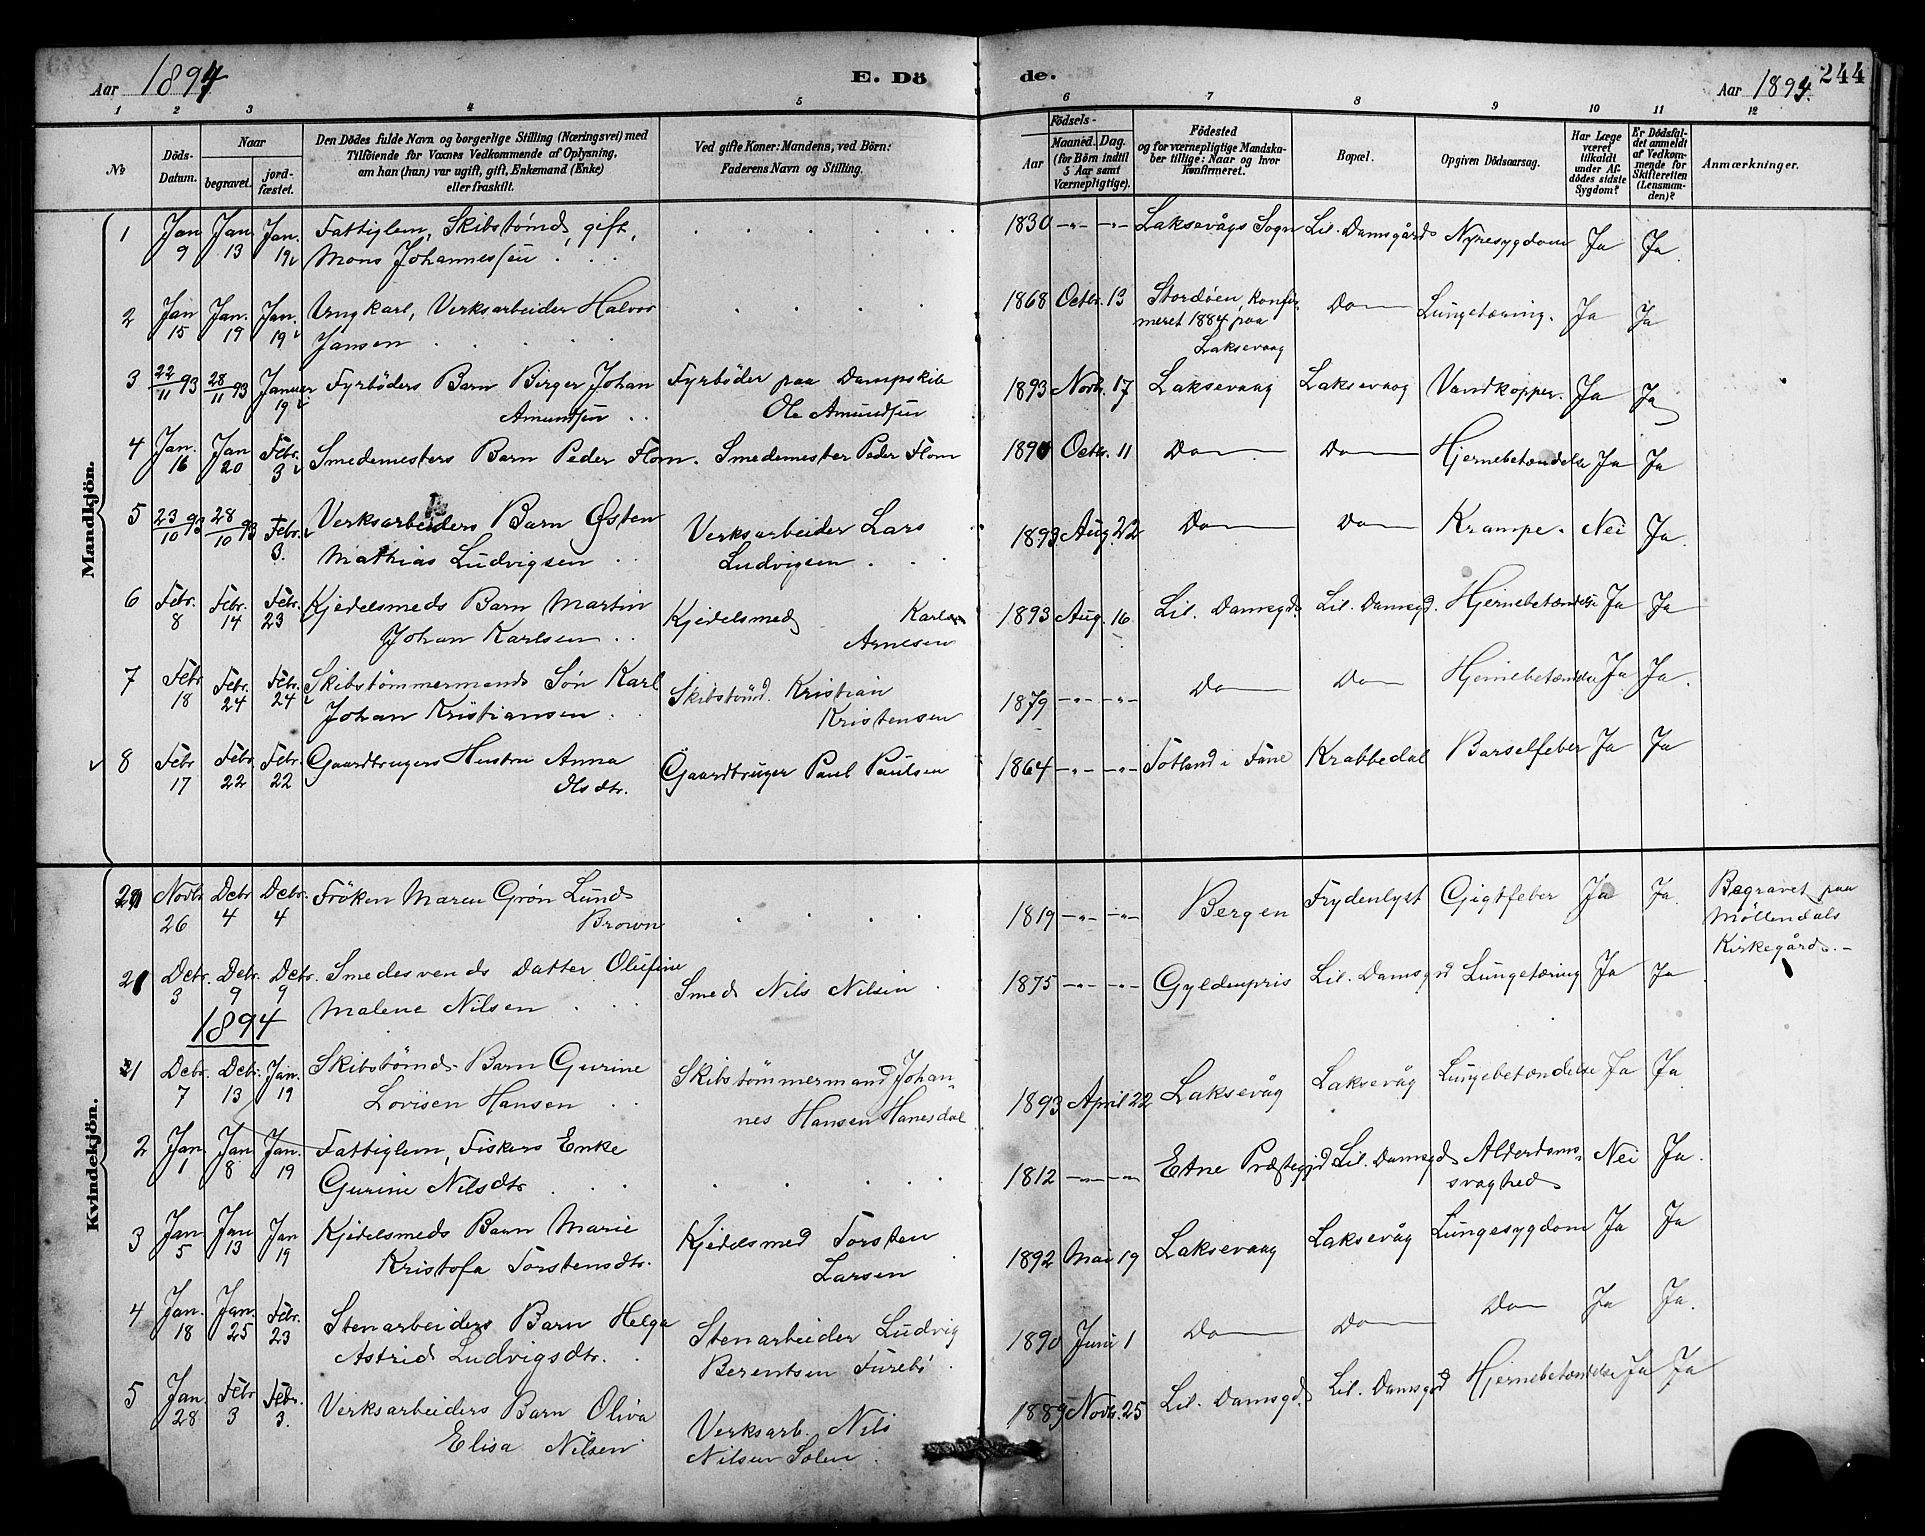 Aar 1894
E. Dö
de.
Aar 1894.
244
1 2 3 4 5 6 7 8 9 10 11 12
No
Döds-Datum.
Naar
begravet.
jord-fæstet.
Den Dödes fulde Navn og borgerlige Stilling (Næringsvei) med
Tilföiende for Voxnes Vedkommende af Oplysning,
om han (hun) var ugift, gift, Enkemand (Enke)
eller fraskilt.
Ved gifte Koner: Mandens, ved Börn:
Faderens Navn og Stilling.
Födsels-
Aar
Maaned. Dag.
(for Börn indtil
5 Aar samt
Værnepligtige).
Födested
og for værnepligtige Mandska-
ber tillige: Naar og hvor
konfirmeret.
Bopæl.
Opgiven Dödsaarsag.
Har Læge
været
tilkaldt
under Af-
dödes sidste
Sygdom?
Er Dödsfal-
det anmeldt
af Vedkom-
mende for
Skifteretten
(Lensman-
den)?
Anmærkninger.
Mandkjön.
1 Jan 9 Jan 13 Jan. 19 Fattiglem, Skibstömd, gift, 1830 -"- -"- Laksevågs Sogn Lil. Damsgård Nyresygdom Ja Ja
Mons Johannessen
2 Jan 15 Jan. 19 Jan. 19 Ungkarl, Verksarbeider Halvor 1868 Octbr. 13 Stordöen, Konfir- Do Lungetæring. Ja Ja
Jansen meret 1884 paa
Laksevaag
3 22/11 93 28/11 93 Januar 19 Fyrböders Barn Birger Johan Fyrböder paa Dampskib 1893 Novbr. 17 Laksevaag Laksevaag Vandkopper. Ja Ja
Amundsen Ole Amundsen
4 Jan. 16 Jan 20 Febr. 3 Smedemesters Barn Peder Flom. Smedemester Peder Flom 1890 Octbr. 11 Do Do Hjernebetændelse Ja Ja
5 23/10 93 28/10 93 Febr. 3. Verksarbeiders Barn Østen Verksarbeider Lars 1893 Aug. 22 Do Do Krampe. Nei Ja.
Mathias Ludvigsen Ludvigsen
6 Febr. 8 Febr. 14 Febr. 23 Kjedelsmeds Barn Martin Kjedelsmed Karl 1893 Aug. 16 Lil. Damsgd. Lil. Damsgd. Hjernebetændelse Ja Ja
Johan Karlsen Arnesen
7 Febr 18 Febr. 24 Febr. 24 Skibstömmermands Sön Karl Skibstömd. Kristian 1879 -"- -"- Do Do Hjernebetændelse Ja Ja.
Johan Kristiansen Kristensen
8 Febr 17 Febr. 22 Febr. 22 Gaardbrugers Hustru Anna Gaardbruger Paul Paulsen 1864 -"- -"- Totland i Fane Krabbedal Barselfeber Ja Ja
Olsdtr.
Kvindekjön.
Novbr 26 Decbr 4 Decbr. 4 Fröken Maren Grön Lund 1819 -"- -"- Bergen Frydenlyst Gigtfeber Ja Ja Begravet paa
Brown Möllendals
Kirkegård.
21 Decbr. 3 Decbr. 9 Decbr. 9 Smedesvends Datter Olufine Smed Nils Nilsen 1875 -"- -"- Gyldenpris Lil. Damsgrd Lungetæring Ja Ja
Malene Nilsen
1894
1 Decbr. 7 Decbr. 13 Jan. 19 Skibstömd. Barn Gurine Skibstömmermand Johan- 1893 April 22 Laksevåg Laksevåg Lungebetændelse Ja Ja
Lovisen Hansen nes Hansen Hanesdal
2 Jan. 1 Jan 8 Jan. 19 Fattiglem, Fiskers Enke 1812 -"- -"- Etne Præstegjd Lil. Damsgd. Alderdoms- Nei Ja.
Gurine Nilsdtr. svaghed
3 Jan 5 Jan 13 Jan 19 Kjedelsmeds Barn Marie Kjedelsmed Torsten 1892 Mai 19 Laksevaag Laksevåg Lungesygdom Ja Ja
Kristofa Torstensdtr. Larsen
4 Jan. 18 Jan. 25 Febr. 23 Stenarbeiders Barn Helga Stenarbeider Ludvig 1890 Juni 1 Do Do Do Ja Ja.
Astrid Ludvigsdtr. Berentsen Furebö
5 Jan. 28 Febr 3 Febr. 3. Verksarbeiders Barn Oliva Verksarb. Nils 1889 Novbr. 25 Lil. Damsgd. Lil. Damsgd Hjernebetændelse Ja Ja
Elisa Nilsen Nilsen